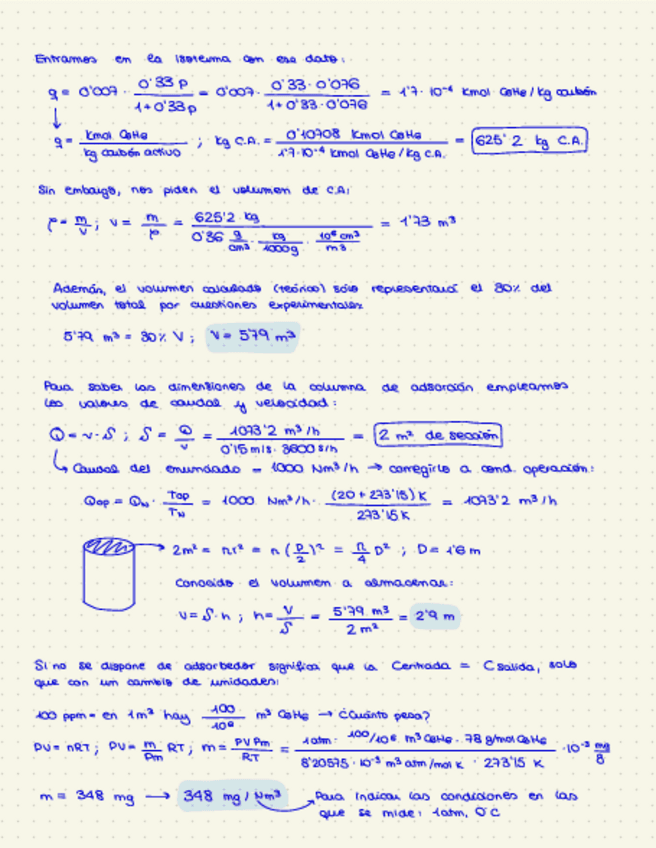 Entramos en la isoterma con ese dato:
q = 0'007 · 0'33 p / 1+0'33 p = 0'007 · 0'33 · 0'076 / 1+0'33 · 0'076 = 1'7 · 10⁻⁴ kmol C6H6 / kg carbón
q = kmol C6H6 / kg carbón activo ; kg C.A. = 0'10708 kmol C6H6 / 1'7·10⁻⁴ kmol C6H6/kg C.A. = 625'2 kg C.A.
Sin embargo, nos piden el volumen de C.A:
ρ = m/v ; v = m/ρ = 625'2 kg / 0'36 g/cm³ · kg/1000g · 10⁶ cm³/m³ = 1'73 m³
Además, el volumen calculado (teórico) sólo representará el 30% del
volumen total por cuestiones experimentales:
5'79 m³ = 30% V ; V = 5'79 m³
Para saber las dimensiones de la columna de adsorción empleamos
los valores de caudal y velocidad:
Q = v · S ; S = Q/v = 1073'2 m³/h / 0'15 m/s · 3600 s/h = 2 m² de sección
↳ Caudal del enunciado = 1000 Nm³/h → corregirlo a cond. operación:
Qop = QN · Top/TN = 1000 Nm³/h · (20 + 273'15) K / 273'15 K = 1073'2 m³/h
2m² = πr² = π (D/2)² = π/4 D² ; D = 1'6 m
Conocido el volumen a almacenar:
V = S · h ; h = V/S = 5'79 m³ / 2 m² = 2'9 m
Si no se dispone de adsorbedor significa que la Centrada = Csalida, solo
que con un cambio de unidades:
100 ppm = en 1m³ hay 100/10⁶ m³ C6H6 → ¿Cuánto pesa?
PV = nRT ; PV = m/Pm RT ; m = PV Pm / RT = 1atm · 100/10⁶ m³ C6H6 · 78 g/mol C6H6 / 8'20575 · 10⁻⁵ m³ atm/mol K · 273'15 K · 10⁻³ mg/g
m = 348 mg → 348 mg / Nm³ → Para indicar las condiciones en las
que se mide: 1atm, 0°C